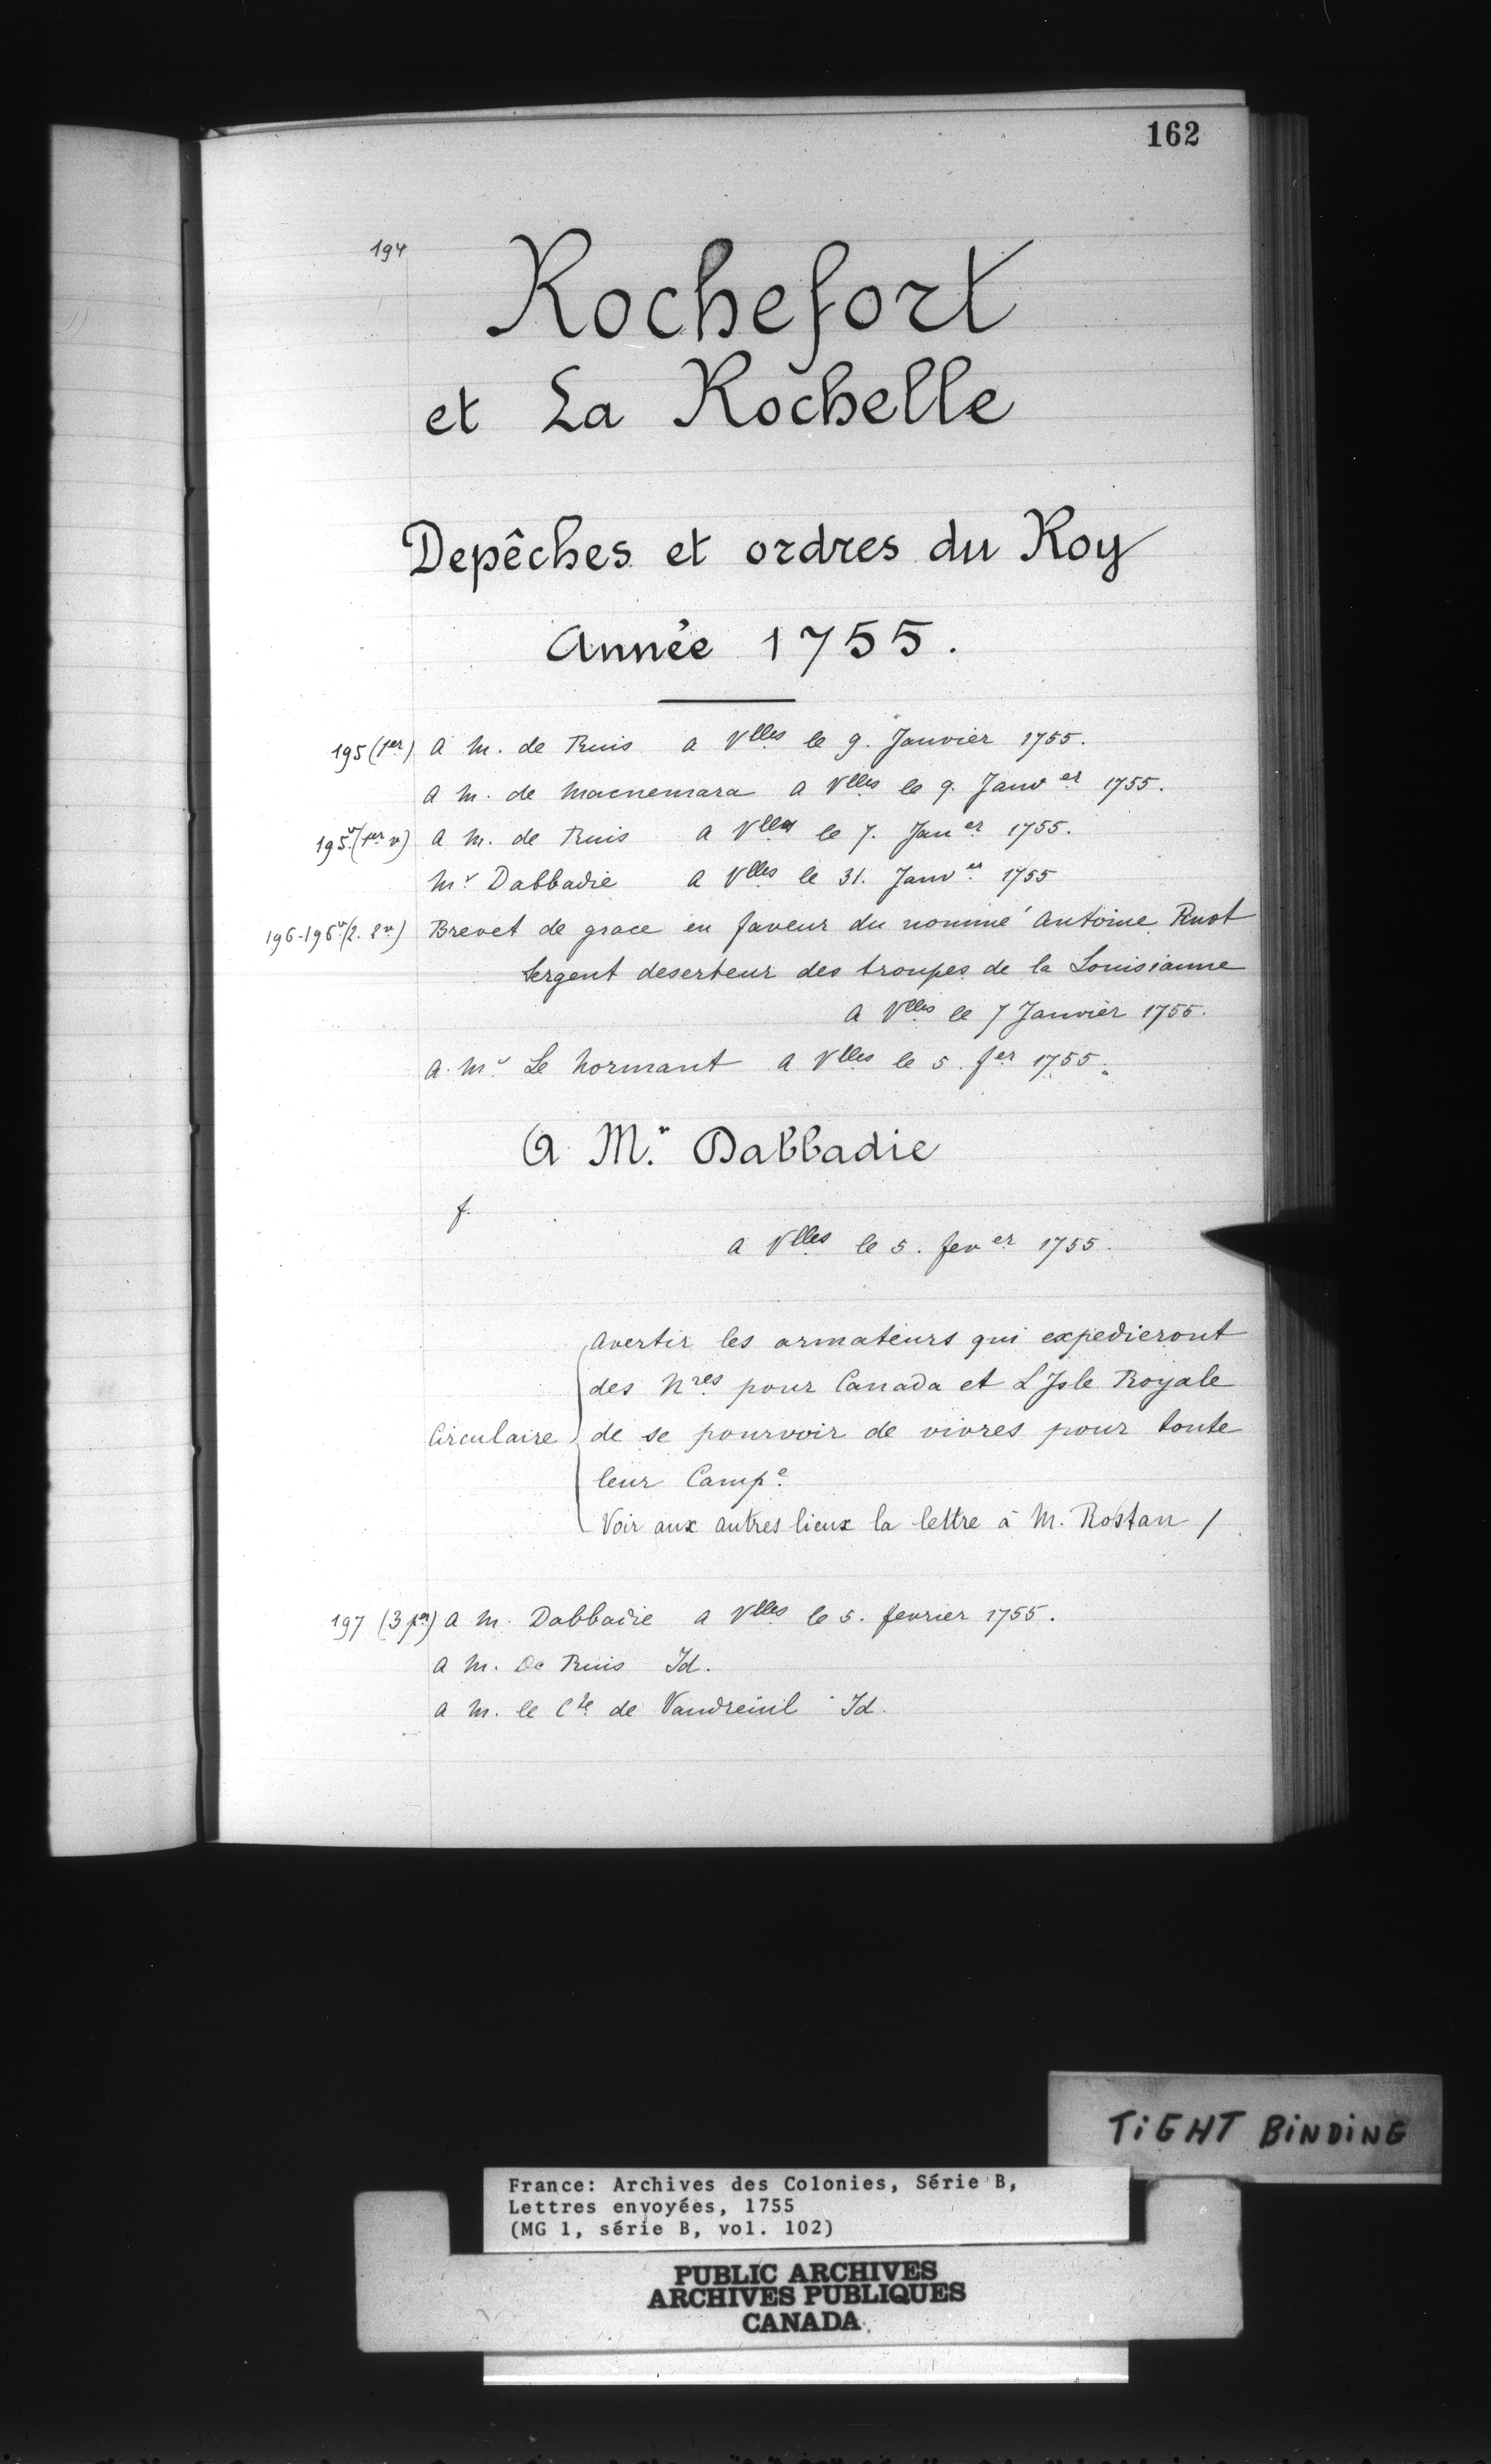 162
194
Rochefort
et La Rochelle
Depêches et ordres du Roy
Année 1755.
195 (1er) A M. de Ruis a Vlles le 9. Janvier 1755.
A M. de Macnemara A Vlles le 9. Janver 1755.
195v (1er v) A M. de Ruis A Vlles le 7. Janer 1755.
Mr Dabbadie A Vlles le 31. Janver 1755
196-196v (2. 2v) Brevet de grace en faveur du nommé Antoine Ruot
Sergent deserteur des troupes de la Louisianne
A Vlles le 7 Janvier 1755.
A. Mr Le Normant A Vlles le 5. fer 1755.
A Mr Dabbadie
f.
A Vlles le 5. fever 1755.
Avertir les armateurs qui expedieront
des Nres pour Canada et L'Isle Royale
Circulaire de se pourvoir de vivres pour toute
leur Campe
Voir aux autres lieux la lettre à M. Rostan /
197 (3 per) A M. Dabbadie A Vlles le 5. fevrier 1755.
A M. De Ruis Id.
A M. le Cte de Vaudreuil Id.
TiGHT BiNDiNG
France: Archives des Colonies, Série B,
Lettres envoyées, 1755
(MG 1, série B, vol. 102)
PUBLIC ARCHIVES
ARCHIVES PUBLIQUES
CANADA